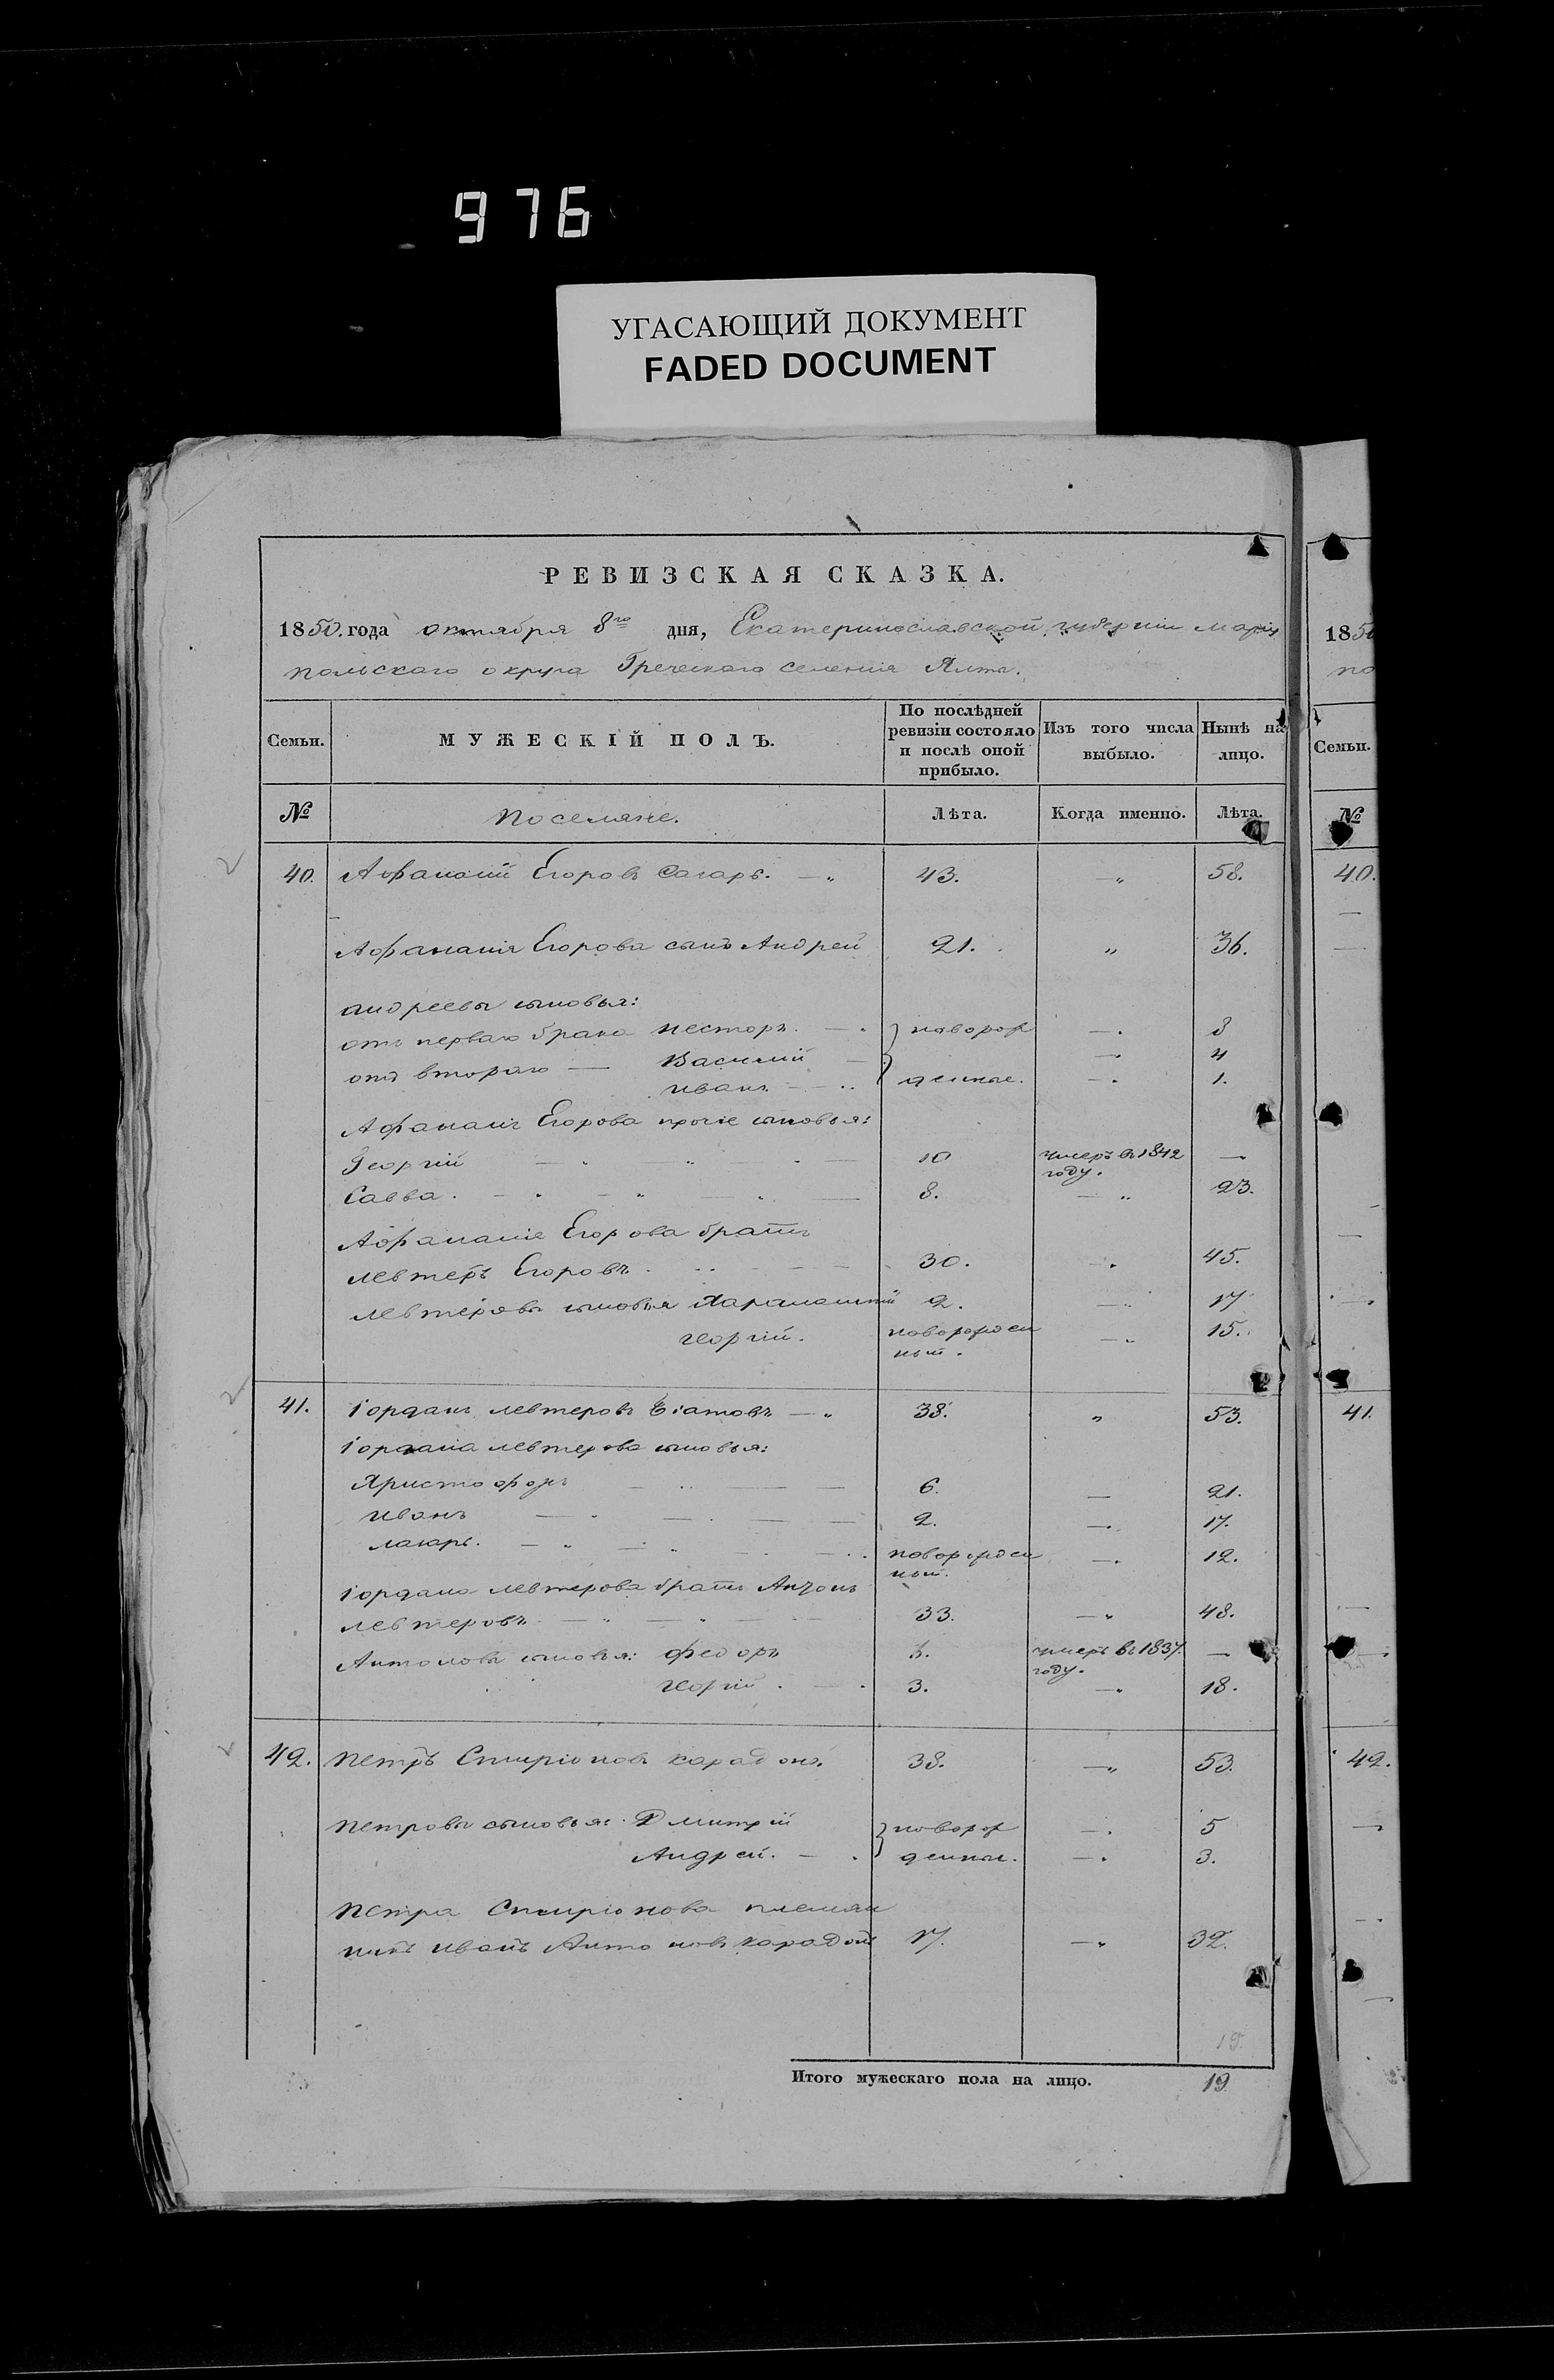 976
УГАСАЮЩИЙ ДОКУМЕНТ
FADED DOCUMENT
РЕВИЗСКАЯ СКАЗКА.
1850. года октября 8го дня, Екатеринославской губерніи Маріу
польскаго округа Греческаго селенія Ялта.
Семьи. МУЖЕСКІЙ ПОЛЪ. По послѣдней ревизіи состояло и послѣ оной прибыло. Изъ того числа выбыло. Нынѣ на лицо.
№ Поселяне. Лѣта. Когда именно. Лѣта.
40. Афанасій Егоровъ Сахаръ. — „ 43. — „ 58.
Афанасія Егорова сынъ Андрей 21. „ 36.
Андреевы сыновья:
отъ перваго брака Несторъ. — . новорож — . 8
отъ втораго — Василий — — „ 4
Иванъ — .. денные. — . 1.
Афанасія Егорова прочіе сыновья:
Георгій — „ „ — 10 умеръ въ 1842 году. —
Савва. — „ — „ — „ — 8. — „ 23.
Афанасія Егорова братъ
Левтеръ Егоровъ. .. — — 30. — . 45.
Левтеровы сыновья Харалампій 2. — „ 17
Георгій. новорожден ный. — „ 15.
41. Іорданъ Левтеровъ — „ 38. „ 53.
Іордана Левтерова сыновья:
Христофоръ — .. — — 6. — 21.
Иванъ — . — . — — 2. — . 17.
Захаръ. — „ — „ — . — .. новорожден ный. — . 12.
Іордана Левтерова братъ Антонъ
Левтеровъ — „ — „ — 33. — „ 48.
Антоновы сыновья: Федоръ 5. умеръ въ 1837. году. —
Георгій . — . 3. — „ 18.
42. Петръ Спиридоновъ 38. — „ 53.
Петровы сыновья: Дмитрій новорож — . 5
Андрей. — . денные. — . 3.
Петра Спиридонова племян
никъ Иванъ Антоновъ 17. — „ 32.
19
Итого мужескаго пола на лицо. 19
1850
по
Семьи.
№
40.
41.
42.